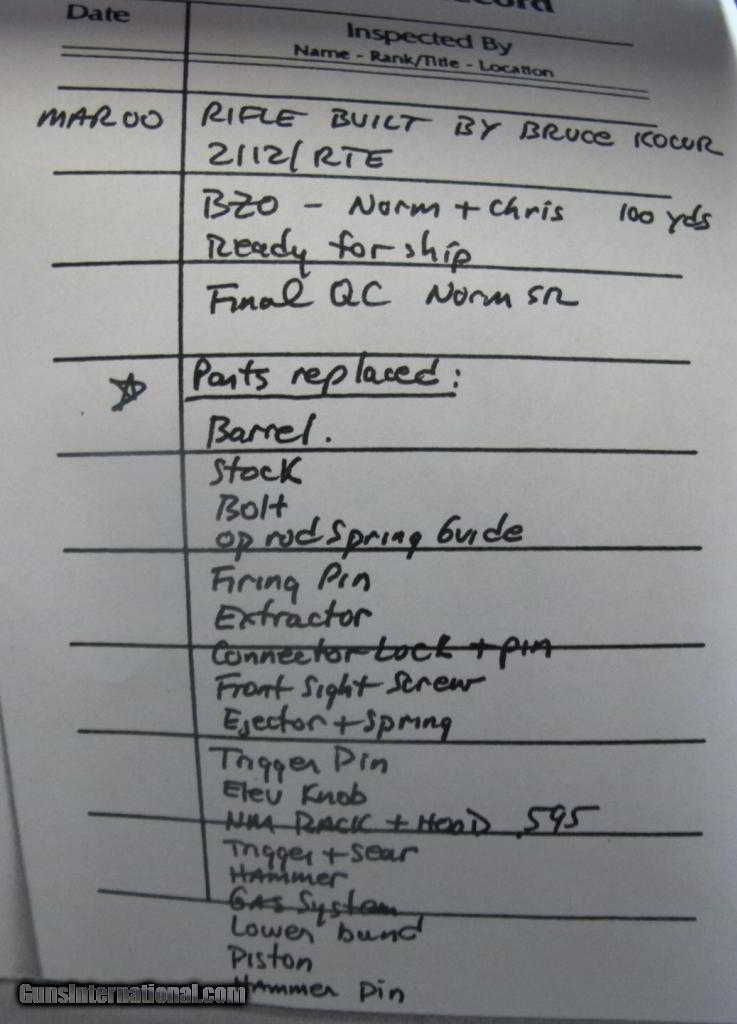 Date
Inspected By
Name - Rank/Title - Location
MAR 00 RIFLE BUILT BY BRUCE KOCUR
2112/RTE
BZO - Norm + Chris 100 yds
Ready for ship
Final QC Norm SR
Parts replaced:
Barrel.
Stock
Bolt
op rod Spring Guide
Firing Pin
Extractor
Connector Lock + pin
Front Sight Screw
Ejector + Spring
Trigger Pin
Elev Knob
NM RACK + HOOD .595
Trigger + Sear
HAMMER
GAS System
Lower band
Piston
HAMMER Pin
GunsInternational.com